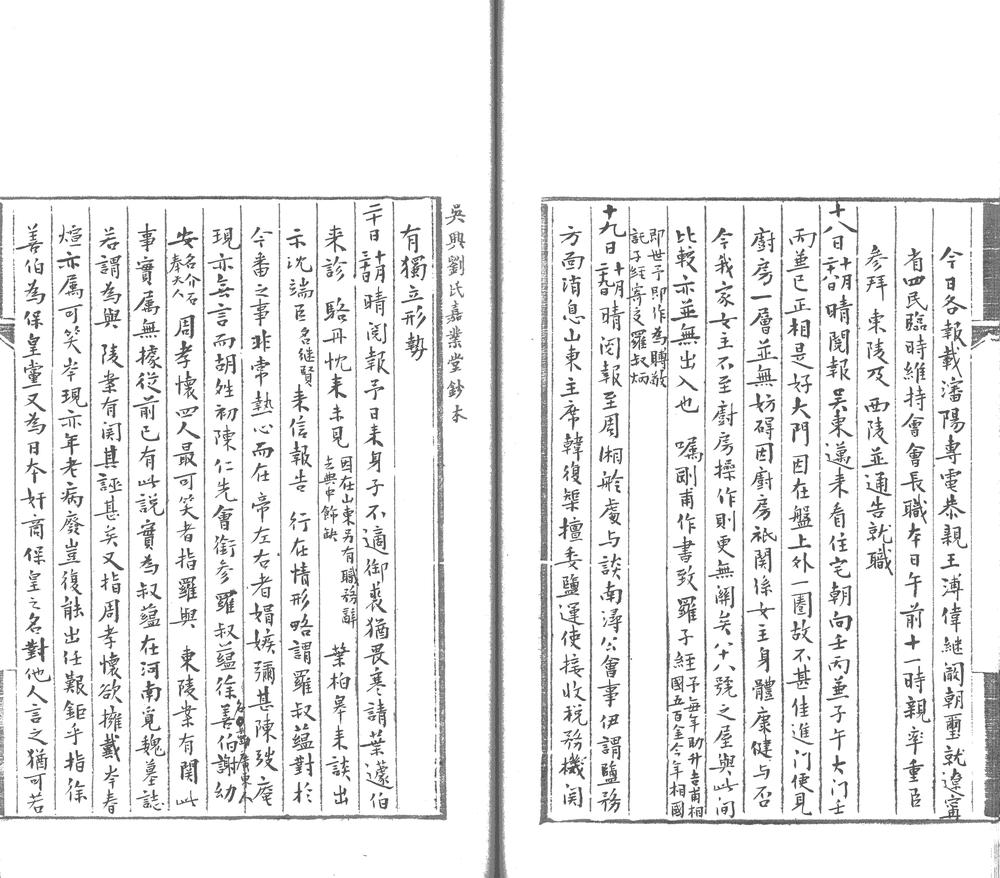 今日各報載瀋陽專電恭親王溥偉繼嗣朝璽就遼寧
省四民臨時維持會會長職本日午前十一時親率重臣
參拜 東陵及 西陵並通告就職
十八日晴閱報吳東邁来看住宅朝向壬丙兼子午大门壬
丙兼巳正相是好大門因在盤上外一圈故不甚佳進门便見
廚房一層並無妨碍因廚房祇関係女主身體康健与否
今我家女主不至廚房操作則更無関矣八十八號之屋與此间
比較亦並無出入也 囑剛甫作書致羅子經
子每年助升吉甫相
國五百金今年相國
即世予即作為賻敬
託子經寄之羅叔炳
十九日晴閱報至周湘舲處与談南潯公會事伊謂鹽務
方面消息山東主席韓復榘擅委鹽運使接收税務機関
吳興劉氏嘉業堂鈔本
有獨立形勢
二十日晴閱報予日来身子不適御裘猶畏寒請葉濛伯
来診 駱丹忱来未見
因在山東另有職務辭
去典中飾缺
葉柏皋来談出
示沈端臣
名继賢
来信報告 行在情形略謂羅叔蘊對於
今番之事非常熱心而在帝左右者媢嫉彌甚陳弢庵
現亦無言而胡姓初陳仁先會銜參羅叔蘊徐善伯謝幼
安
名介石
奉天人
周孝懷四人最可笑者指羅與 東陵業有関此
事實属無據從前已有此説實為叔蘊在河南覓魏墓誌
若謂為與 陵案有関其誣甚矣又指周孝懷欲擁戴岑春
煊亦属可笑岑現亦年老病廢豈復能出任艱鉅乎指徐
善伯為保皇黨又為日本奸商保皇之名對他人言之猶可若